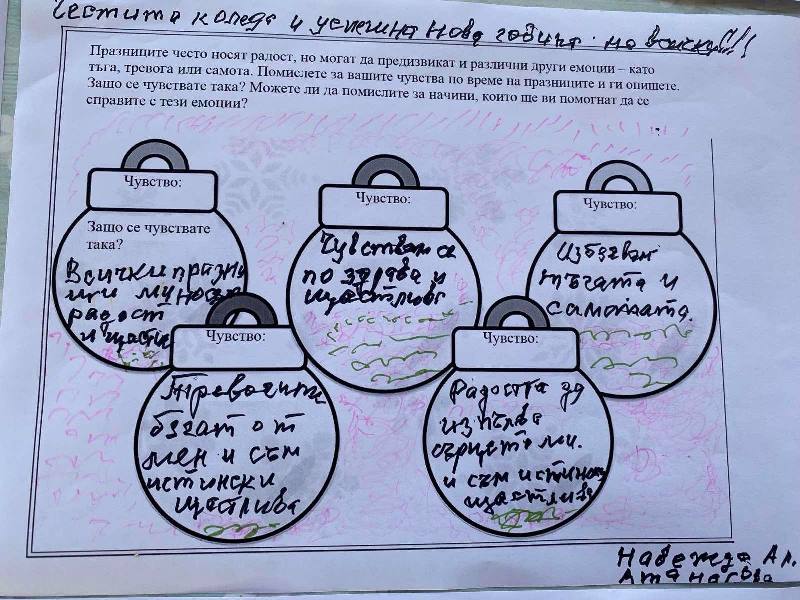 Честита коледа и успешна Нова година на всички!!!
Празниците често носят радост, но могат да предизвикат и различни други емоции – като
тъга, тревога или самота. Помислете за вашите чувства по време на празниците и ги опишете.
Защо се чувствате така? Можете ли да помислите за начини, които ще ви помогнат да се
справите с тези емоции?
Чувство:
Защо се чувствате
така?
Всички празни
ци ми носят
радост
и щастие
Чувство:
Чувствам се
по здрава и
щастлива
Чувство:
Избягвам
тъгата и
самотата.
Чувство:
Тревогите
бягат от
мен и съм
истински
щастлива
Чувство:
Радостта
изпълва
сърцето ми.
и съм истински
щастлива
Надежда Ал.
Атанасова